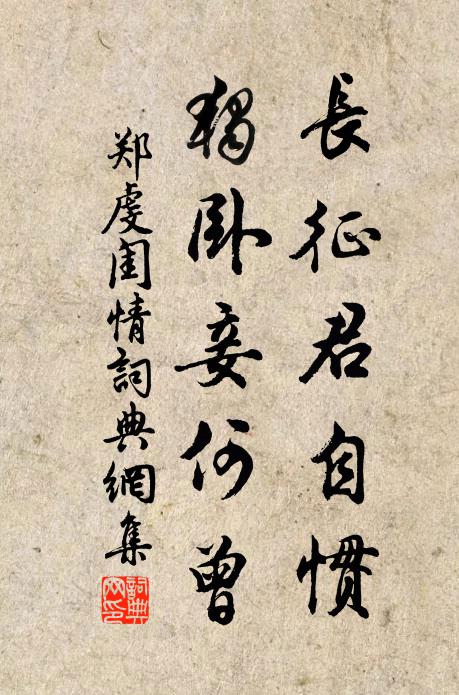 長征君自慣
獨卧妾何曾
郑虔闺情詞典網集
詞典网印